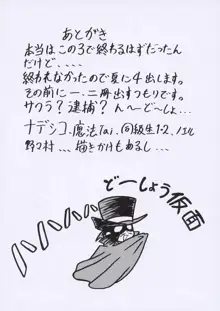 あとがき
本当はこの3で終わるはずだったん
だけど....
終われなかったので夏に4出します。
その前に一、二冊出すつもりです。
サクラ?逮捕? んーどーしょ...
ナデシコ、魔法Tai、同級生1・2、ノエル
野々村、...描きかけもあるし...
どーしょう仮面
ハハハハハ